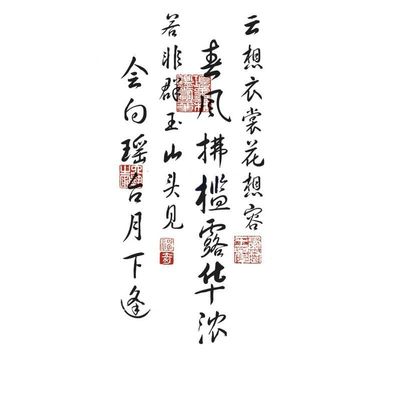 云想衣裳花想容
春风拂槛露华浓
若非群玉山头见
会向瑶台月下逢